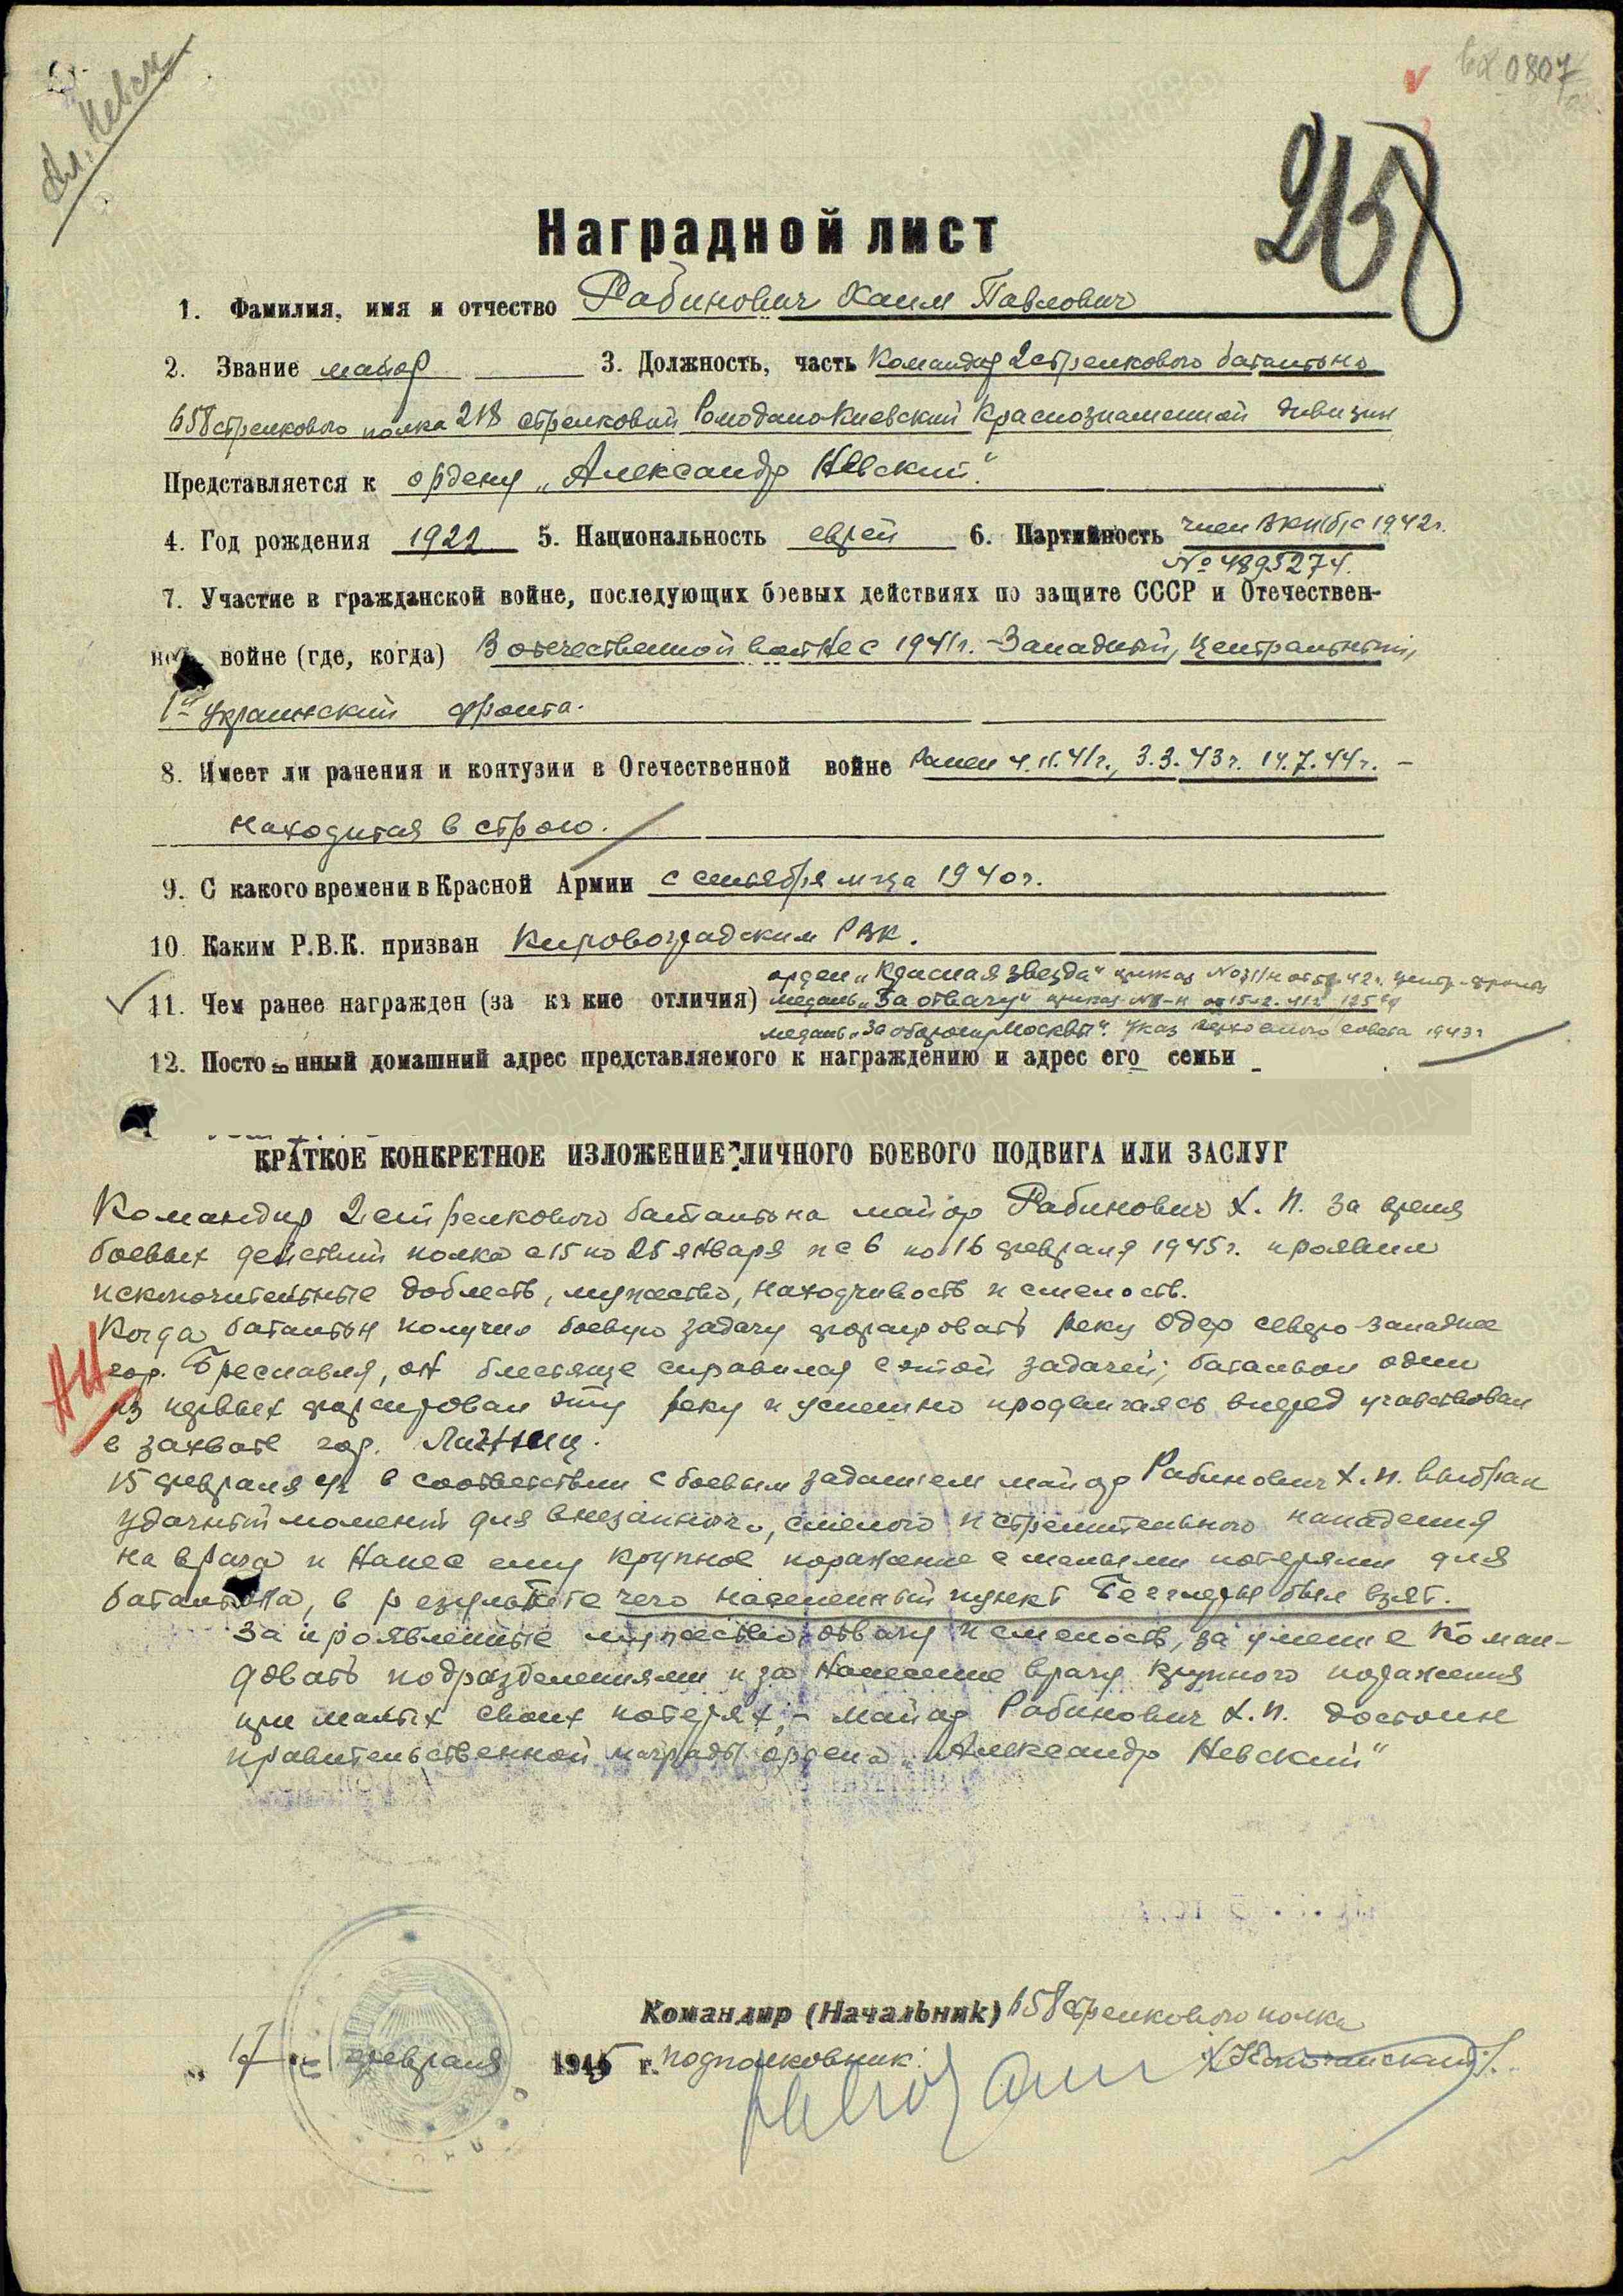 Ал. Невск.
вх 0807
258
Наградной лист
1. Фамилия, имя и отчество Рабинович Хаим Павлович
2. Звание майор 3. Должность, часть Командир 2 стрелкового батальона
658 стрелкового полка 218 стрелковой Ромодано-Киевской Краснознаменной дивизии
Представляется к ордену „Александр Невский".
4. Год рождения 1922 5. Национальность еврей 6. Партийность член ВКП(б) с 1942 г.
№ 4895274.
7. Участие в гражданской войне, последующих боевых действиях по защите СССР и Отечествен-
ной войне (где, когда) В отечественной войне с 1941 г. - Западный, Центральный,
1й Украинский фронта.
8. Имеет ли ранения и контузии в Отечественной войне Ранен 4.11.41 г., 3.3.43 г. 14.7.44 г. -
находится в строю.
9. С какого времени в Красной Армии с сентября м-ца 1940 г.
10. Каким Р.В.К. призван Кировоградским РВК.
орден „Красная звезда" приказ 42 г. центр. фронта
11. Чем ранее награжден (за какие отличия) медаль „За отвагу" приказ
медаль „За оборону Москвы". Указ Верховного Совета 1943 г.
12. Постоянный домашний адрес представляемого к награждению и адрес его семьи
КРАТКОЕ КОНКРЕТНОЕ ИЗЛОЖЕНИЕ ЛИЧНОГО БОЕВОГО ПОДВИГА ИЛИ ЗАСЛУГ
Командир 2 стрелкового батальона майор Рабинович Х. П. за время
боевых действий полка с 15 по 25 января и с 6 по 16 февраля 1945 г. проявил
исключительные доблесть, мужество, находчивость и смелость.
Когда батальон получил боевую задачу форсировать реку Одер северо-западнее
гор. Бреславля, он блестяще справился с этой задачей; батальон один
АН
из первых форсировал эту реку и успешно продвигаясь вперед участвовал
в захвате гор. Лигниц.
15 февраля с/г в соответствии с боевым заданием майор Рабинович Х. П. выбрал
удачный момент для внезапного, смелого и стремительного нападения
на врага и нанес ему крупное поражение с малыми потерями для
батальона, в результате чего населенный пункт был взят.
За проявленные мужество, отвагу и смелость, за умение коман-
довать подразделениями и за нанесение врагу крупного поражения
при малых своих потерях, - майор Рабинович Х. П. достоин
правительственной награды ордена „Александр Невский"
Командир (Начальник) 658 стрелкового полка
„17" февраля 1945 г. подполковник